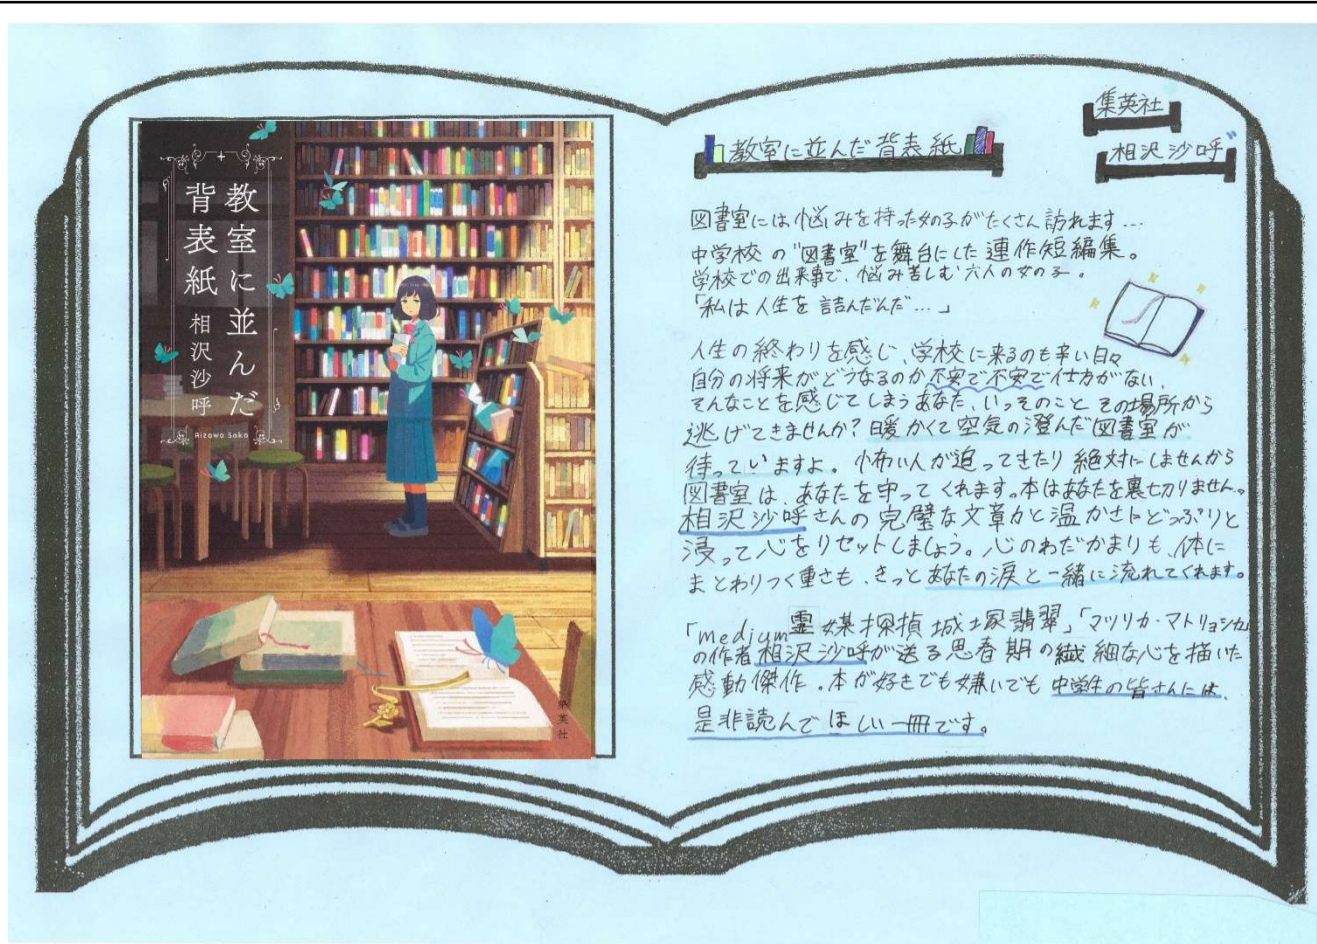 教室に並んだ
背表紙
相沢沙呼
Aizawa Sako
集英社
教室に並んだ背表紙
集英社
相沢沙呼
図書室には悩みを持った女の子がたくさん訪れます…
中学校の"図書室"を舞台にした連作短編集。
学校での出来事で、悩み苦しむ六人の女の子。
「私は人生を詰んだんだ…」
人生の終わりを感じ、学校に来るのも辛い日々
自分の将来がどうなるのか不安で不安で仕方がない、
そんなことを感じてしまうあなた、いっそのこと その場所から
逃げてきませんか?暖かくて空気の澄んだ図書室が
待っていますよ。怖い人が追ってきたり絶対にしませんから
図書室は、あなたを守ってくれます。本はあなたを裏切りません。
相沢沙呼さんの完璧な文章力と温かさにどっぷりと
浸って心をリセットしましょう。心のわだかまりも、体に
まとわりつく重さも、きっとあなたの涙と一緒に流れてくれます。
「medium霊媒探偵城塚翡翠」「マツリカ・マトリョシカ」
の作者相沢沙呼が送る思春期の繊細な心を描いた
感動傑作。本が好きでも嫌いでも中学生の皆さんには、
是非読んでほしい一冊です。